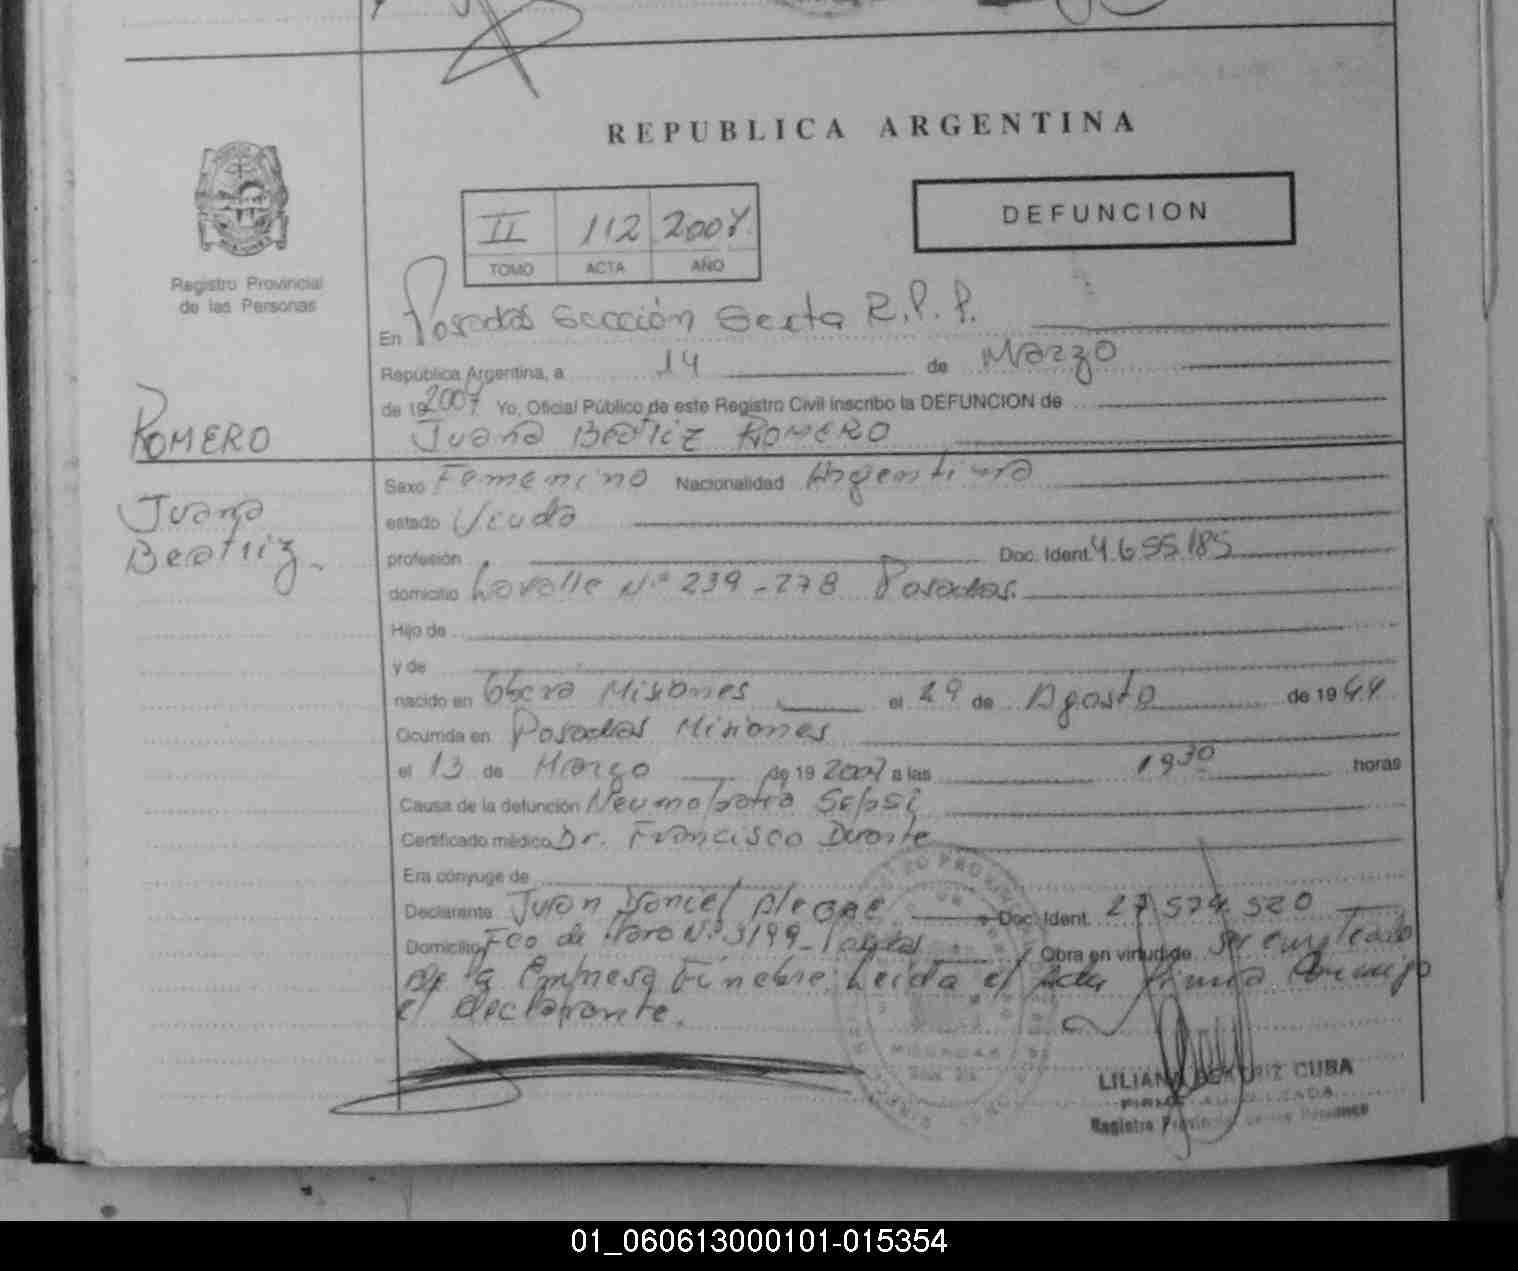 REPUBLICA ARGENTINA
DEFUNCION
II 112 2007
TOMO ACTA AÑO
Registro Provincial
de las Personas
En Posadas Sección Sexta R.P.P.
República Argentina, a 14 de Marzo
de 19 2007 Yo, Oficial Público de este Registro Civil inscribo la DEFUNCION de
Juana Beatriz ROMERO
ROMERO
Juana
Beatriz
Sexo Femenino Nacionalidad Argentina
estado Viuda
profesión Doc. Ident. 4.655.185
domicilio Lavalle Nº 239-278 Posadas.
Hijo de
y de
nacido en Obera Misiones el 29 de Agosto de 1944
Ocurrida en Posadas Misiones
el 13 de Marzo de 19 2007 a las 19 30 horas
Causa de la defunción Neumopatia Sepsi
Certificado médico Dr. Francisco Duarte
Era cónyuge de
Declarante Juan Daniel Alegre Doc. Ident. 27.574.520
Domicilio Fco de Haro Nº 3199 Obra en virtud de ser empleado
de la Empresa Funebre. Leida el Acta firma conmigo
el declarante.
LILIANA BEATRIZ CUBA
FIRMA AUTORIZADA
Registro Provincial de las Personas
01_060613000101-015354